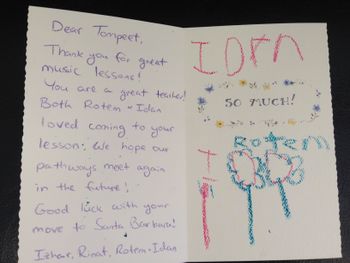 Dear Tompeet,
Thank you for great
music lessons!
You are a great teacher!
Both Rotem + Idan
loved coming to your
lesson. We hope our
pathways meet again
in the future!
Good luck with your
move to Santa Barbara!
Izhar, Rinat, Rotem + Idan
IDAN
SO MUCH!
Rotem